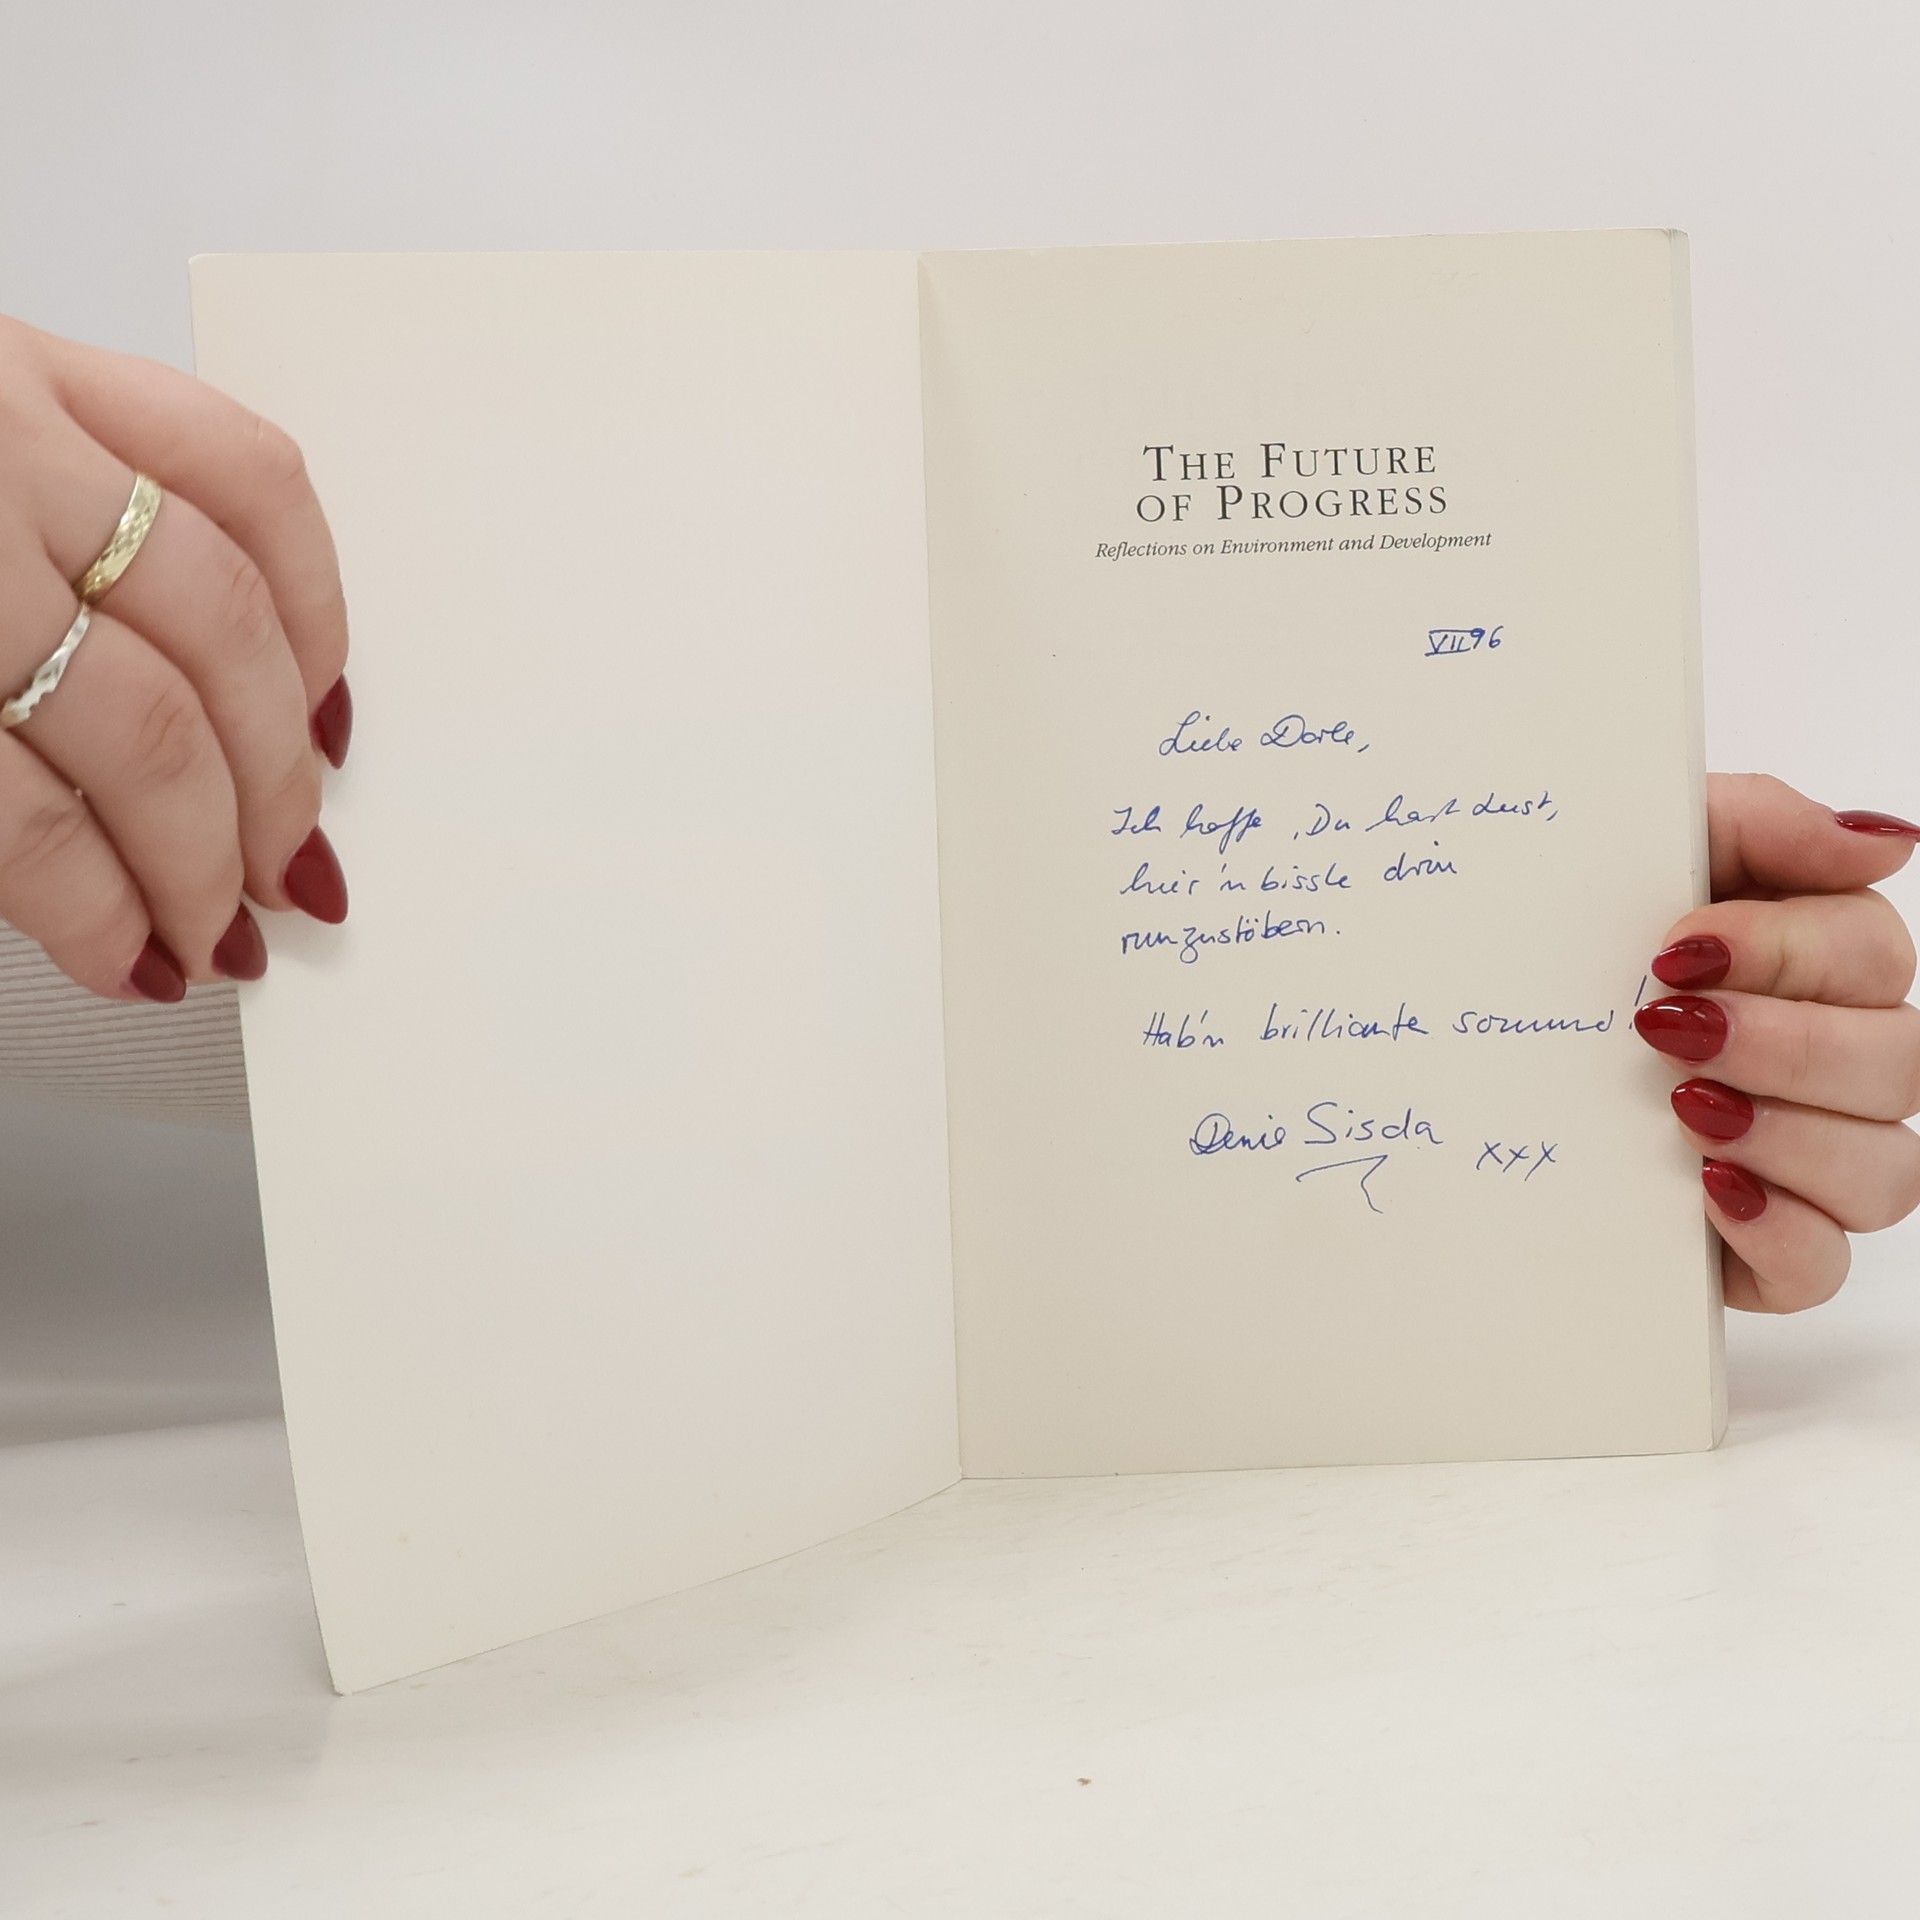 THE FUTURE
OF PROGRESS
Reflections on Environment and Development
VII 96
Liebe Dorle,
Ich hoffe, Du hast Lust,
hier 'n bissle drin
rumzustöbern.
Hab'n brilliante Sommer!
Deine
xxx